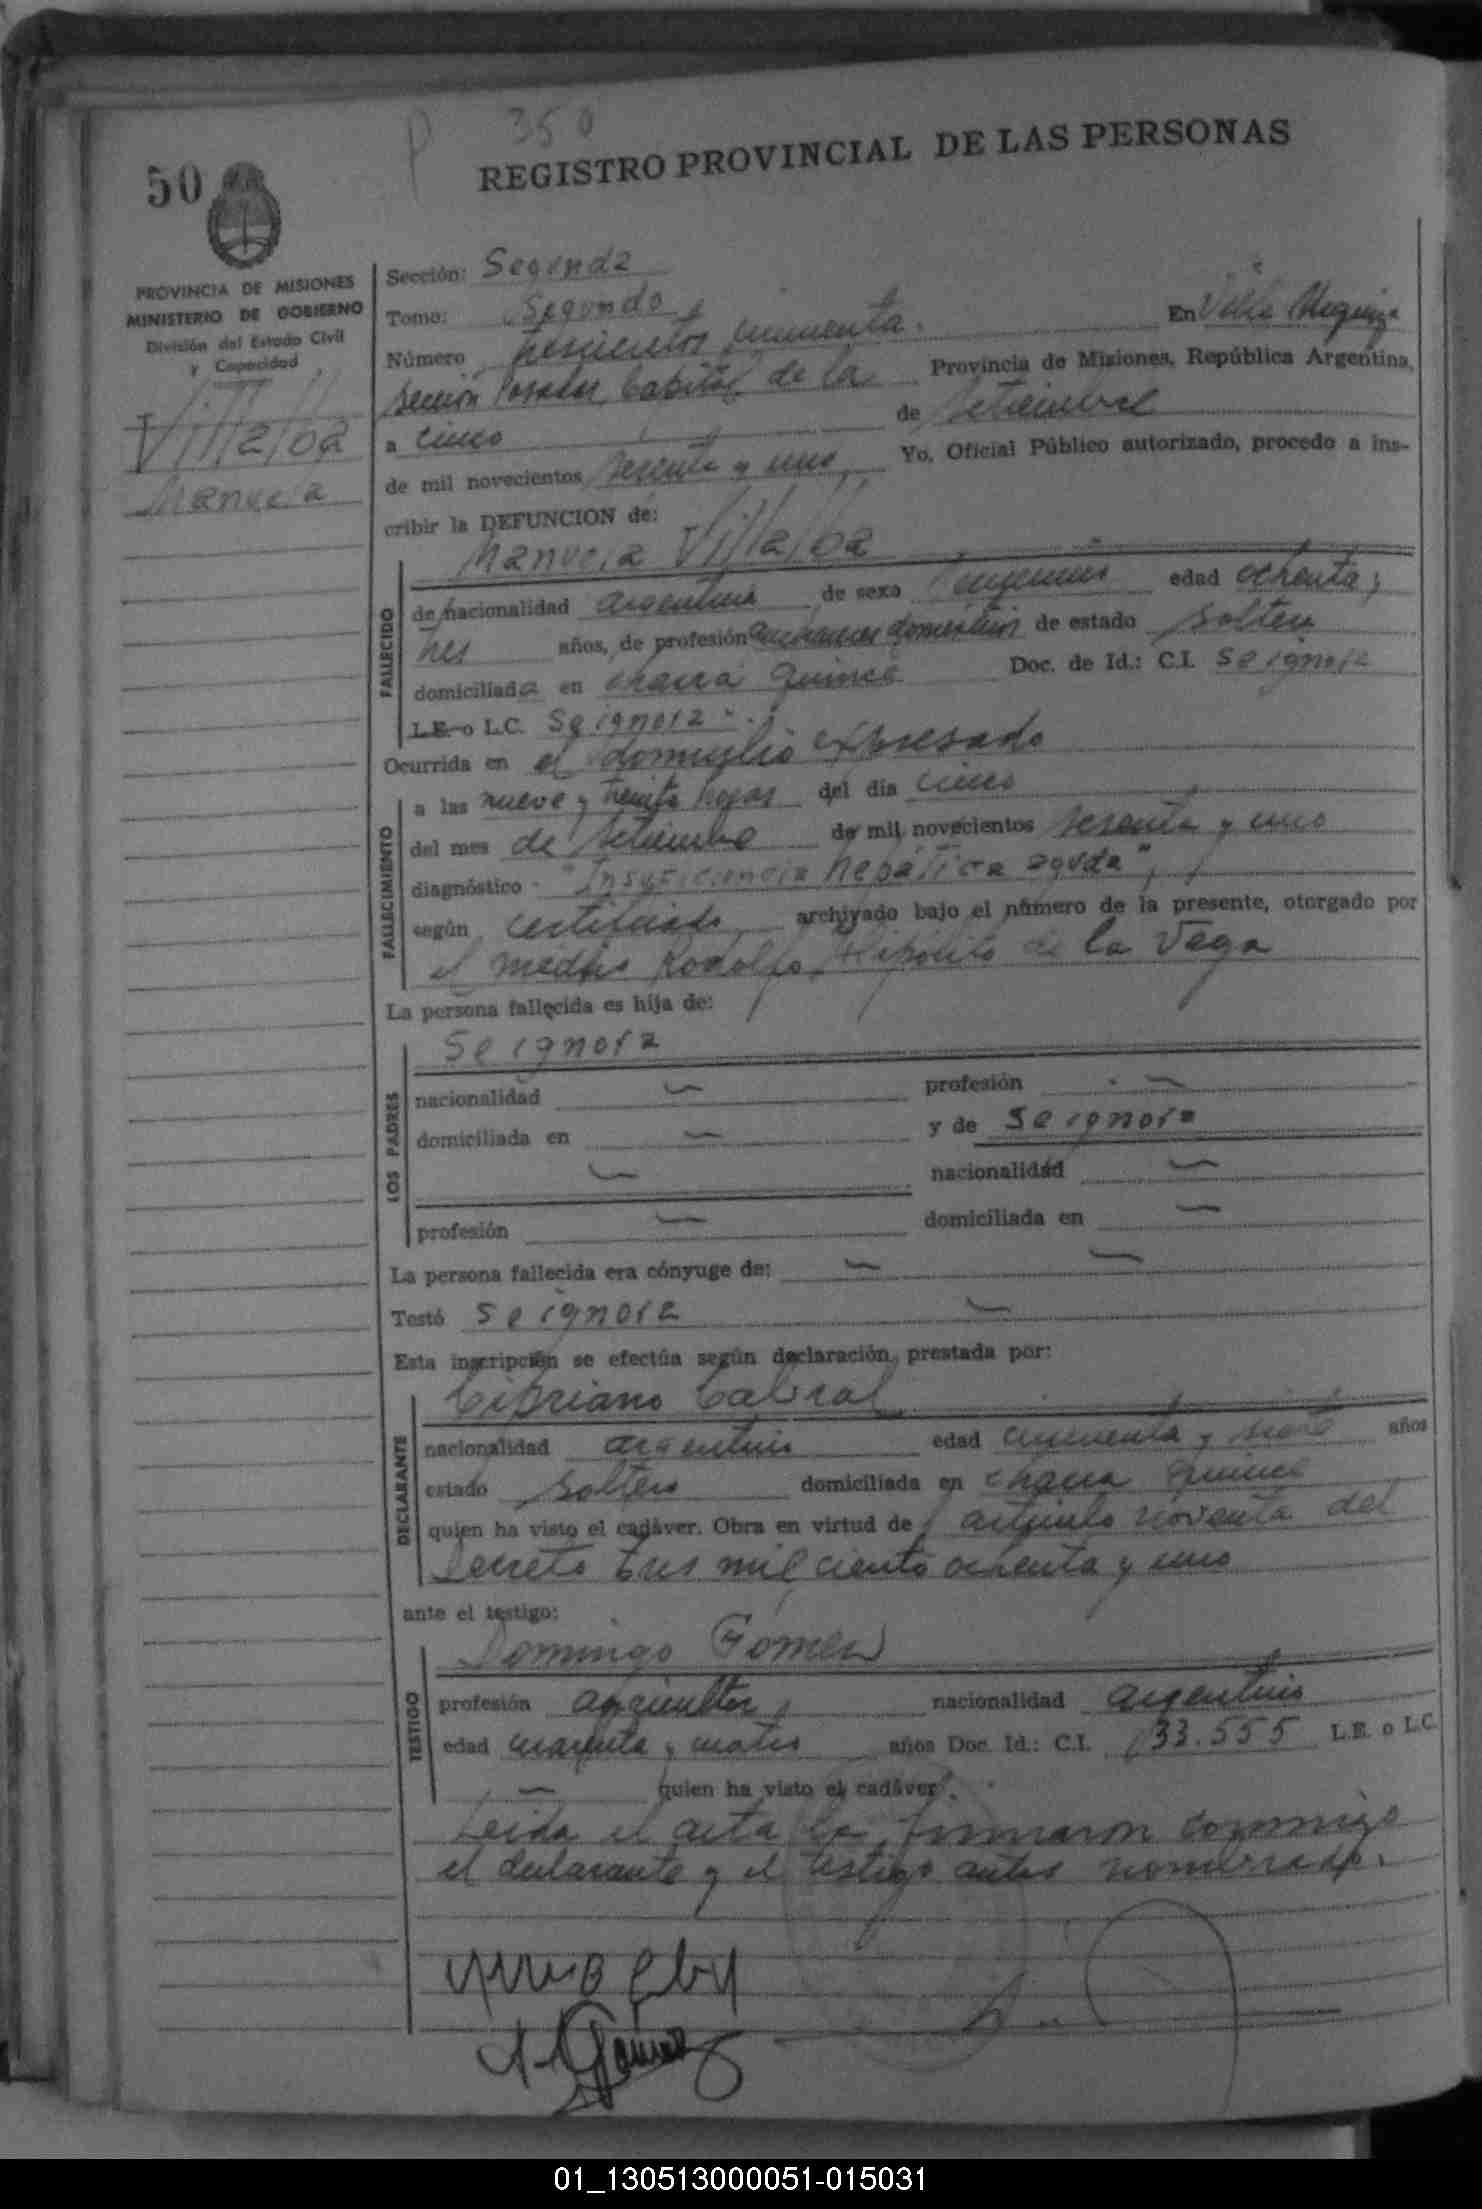 P 350
50
REGISTRO PROVINCIAL DE LAS PERSONAS
PROVINCIA DE MISIONES
MINISTERIO DE GOBIERNO
División del Estado Civil
y Capacidad
Villalba
Manuela
Sección: Segunda
Tomo: Segundo
Número trescientos cincuenta. En Villa Urquiza
Sección Posadas Capital de la Provincia de Misiones, República Argentina,
a cinco de Setiembre
de mil novecientos sesenta y uno Yo, Oficial Público autorizado, procedo a ins-
cribir la DEFUNCION de:
Manuela Villalba
FALLECIDO
de nacionalidad argentina de sexo femenino edad ochenta y
tres años, de profesión quehaceres domésticos de estado soltera
domiciliada en chacra quince Doc. de Id.: C.I. Se ignora
L.E. o L.C. Se ignora
Ocurrida en el domicilio expresado
FALLECIMIENTO
a las nueve y treinta horas del día cinco
del mes de setiembre de mil novecientos sesenta y uno
diagnóstico - "Insuficiencia hepática aguda",
según certificado archivado bajo el número de la presente, otorgado por
el médico Rodolfo Hipólito de la Vega
La persona fallecida es hija de:
LOS PADRES
Se ignora
nacionalidad — profesión —
domiciliada en — y de Se ignora
— nacionalidad —
profesión — domiciliada en —
La persona fallecida era cónyuge de: — —
Testó Se ignora —
Esta inscripción se efectúa según declaración prestada por:
DECLARANTE
Cipriano Cabral
nacionalidad argentino edad cincuenta y siete años
estado soltero domiciliada en chacra quince
quien ha visto el cadáver. Obra en virtud de artículo noventa del
Decreto tres mil ciento ochenta y uno
ante el testigo:
TESTIGO
Domingo Gómez
profesión agricultor nacionalidad argentino
edad cuarenta y cuatro años Doc. Id.: C.I. 133.555 L.E. o L.C.
— quien ha visto el cadáver.
Leída el acta la firmaron conmigo
el declarante y el testigo antes nombrado.
Gómez
01_130513000051-015031